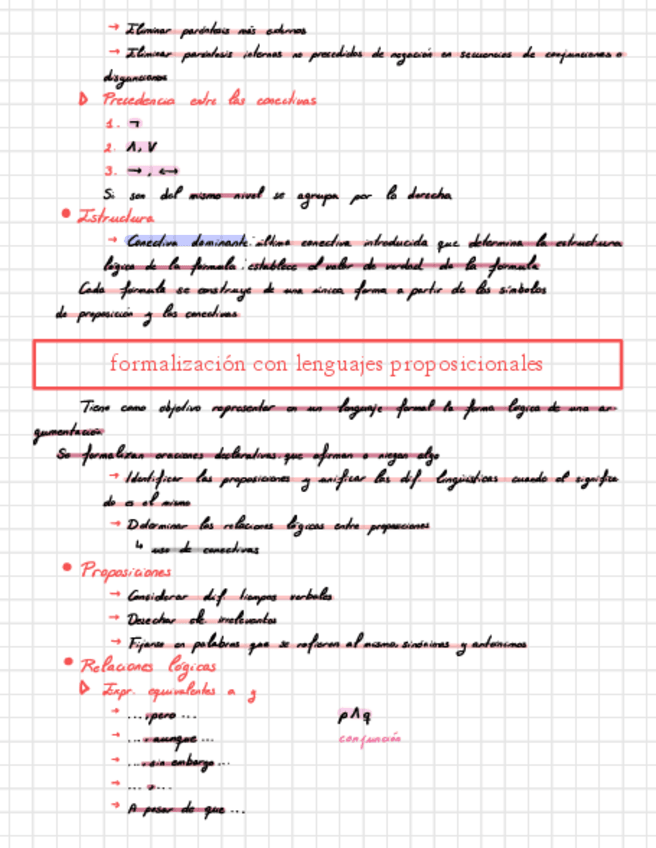 → Eliminar paréntesis más externos
→ Eliminar paréntesis internos no precedidos de negación en secuencias de conjunciones o
disyunciones
▷ Precedencia entre las conectivas
1. ¬
2. ∧, ∨
3. →, ↔
Si son del mismo nivel se agrupa por la derecha
• Estructura
→ Conectiva dominante: última conectiva introducida que determina la estructura
lógica de la fórmula: establece el valor de verdad de la fórmula
Cada fórmula se construye de una única forma a partir de los símbolos
de proposición y las conectivas
formalización con lenguajes proposicionales
Tiene como objetivo representar en un lenguaje formal la forma lógica de una ar-
gumentación
Se formalizan oraciones declarativas que afirman o niegan algo
→ Identificar las proposiciones y unificar las dif. lingüísticas cuando el significa
do es el mismo
→ Determinar las relaciones lógicas entre proposiciones
↳ uso de conectivas
• Proposiciones
→ Considerar dif. tiempos verbales
→ Desechar irrelevantes
→ Fijarse en palabras que se refieren al mismo, sinónimos y antónimos
• Relaciones lógicas
▷ Expr. equivalentes a y
→ ... pero ... p∧q
→ ... aunque ... conjunción
→ ... sin embargo ...
→ ... ...
→ A pesar de que ...